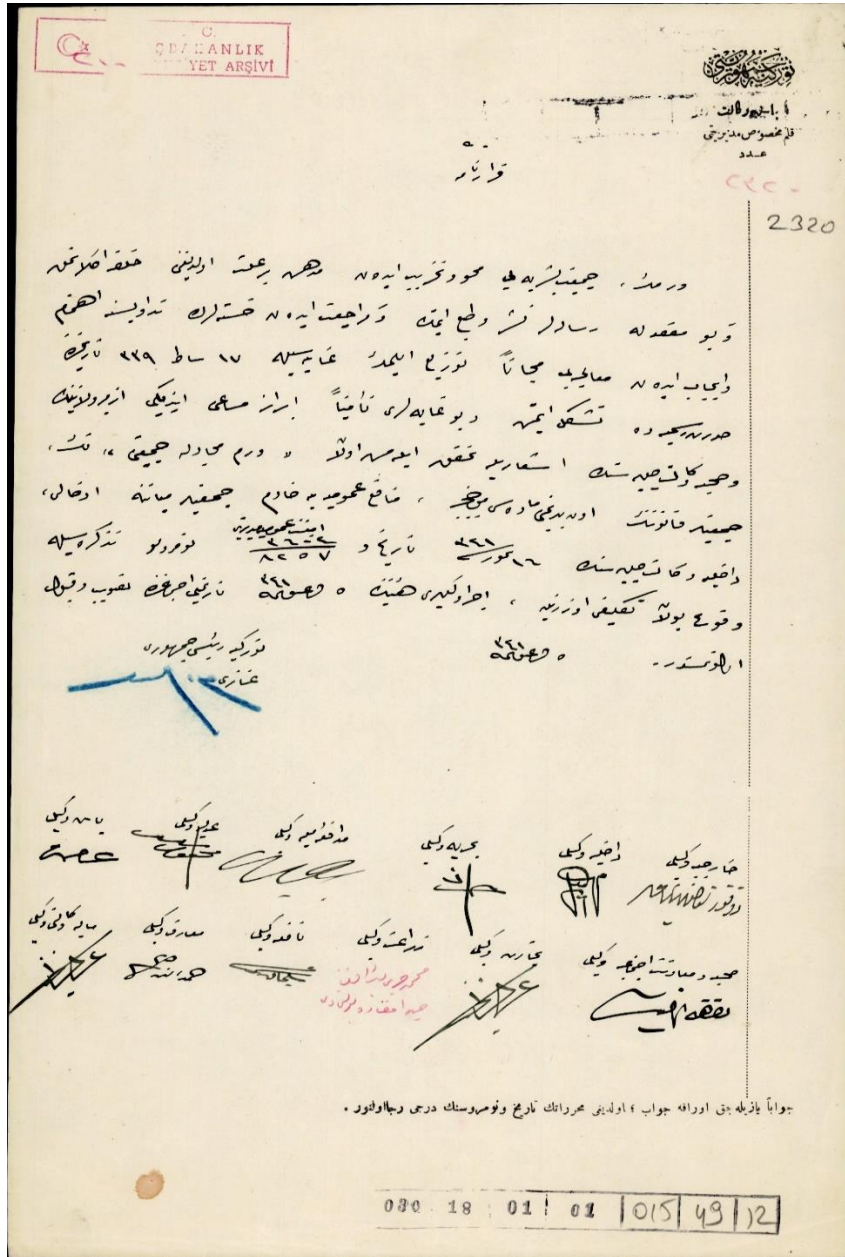 T.C.
BAKANLIK
YET ARŞİVİ
باش وكالت
قلم مخصوص مديريتى
عدد
٢٣٢٠
2320
قرارنامه
ورمك، جمعيت بشريه يى محو و تخريب ايدن مدهش بر علت اولديغنى خلقه اكلاتمق
و بو مقصدله رساله لر نشر و طبع ايتمك و مراجعت ايدن خسته لرك تداويسنه اهتمام
و ايجاب ايدن معالجه يى مجاناً توزيع ايلمك غايه سيله ١٧ شباط ٣٣٩ تاريخنده
تشكل ايتمش و بو غايه لرى تأميناً ابراز مساعى ايتديكى ازمير ولايتنك
و صحيه وكالت جليله سنك اشعاريله تحقق ايلمش اولان «ورم مجادله جمعيتى» نك،
جمعيتلر قانوننك اون يدنجى ماده سى موجبنجه، منافع عموميه يه خادم جمعيتلر ميانه ادخالى،
داخليه وكالت جليله سنك ١٦ تموز ٣٤١ تاريخ و امنيت عموميه مديريتى ٨٢٥٧ نومرولو تذكره سيله
وقوع بولان تكليفى اوزرينه، اجرا وكيللرى هيئتنك ٥ ٣٤١ تاريخلى اجتماعنده تصويب و قبول
اولنمشدر. ٥ ٣٤١
توركيه رئيس جمهورى
غازى
باش وكيلى
عدليه وكيلى
مدافعه مليه وكيلى
بحريه وكيلى
داخليه وكيلى
خارجيه وكيلى
ماليه وكالتى وكيلى
معارف وكيلى
نافعه وكيلى
زراعت وكيلى
تجارت وكيلى
صحيه و معاونت اجتماعيه وكيلى
جواباً يازيله جق اوراقه جواب اولدينى محرراتك تاريخ ونومروسنك درجى رجا اولنور.
030 18 01 01 015 49 12